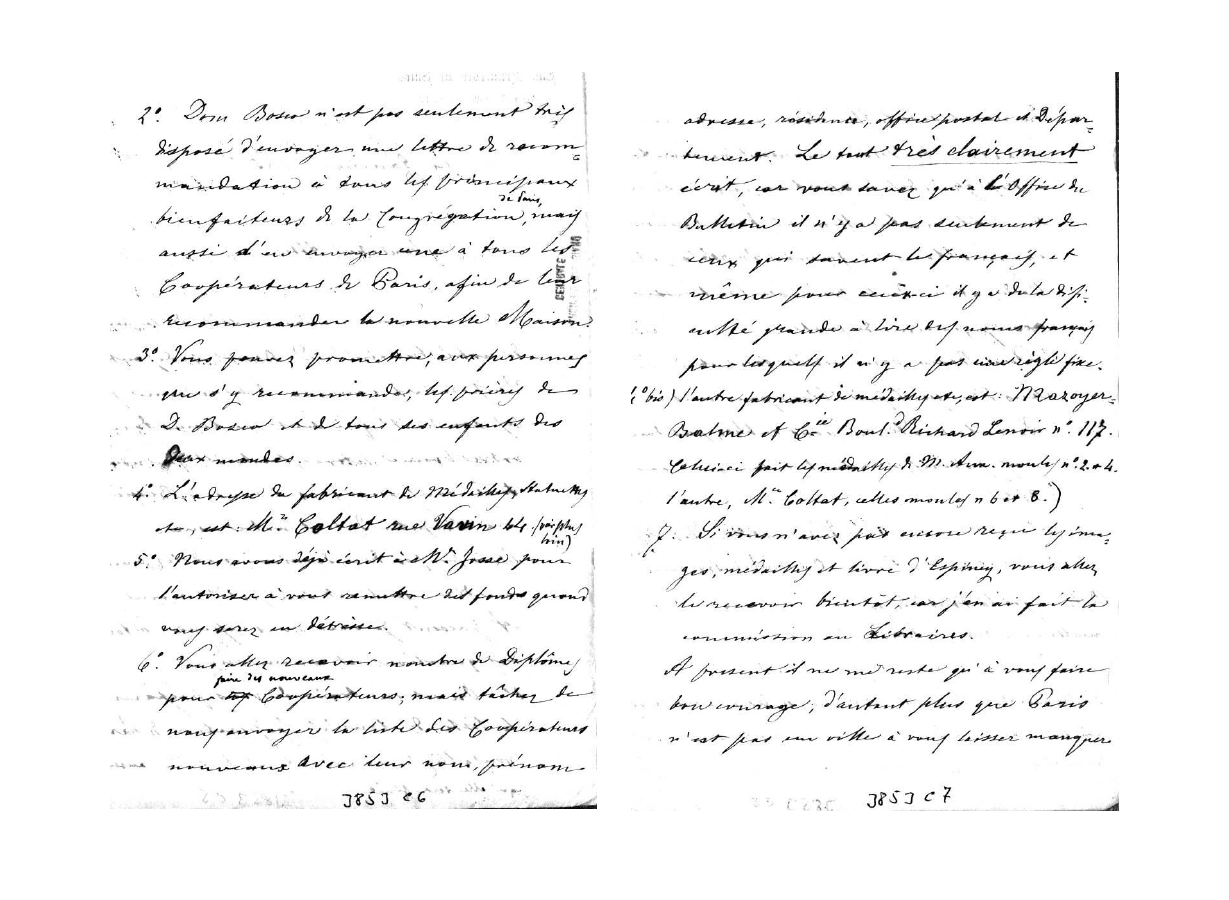 2.° Dom Bosco n'est pas seulement très
disposé d'envoyer une lettre de recom=
mandation à tous les principaux
de Paris,
bienfaiteurs de la Congrégation, mais
aussi d'en envoyer une à tous les
Coopérateurs de Paris, afin de leur
recommander la nouvelle Maison.
3.° Vous pouvez promettre, aux personnes
que s'y recommande, les prières de
D. Bosco et d tous ses enfants des
deux mondes.
4.° L'adresse du fabricant de Médailles, Statuettes
etc, est Mr. Coltat rue Vavin
(voir plus
loin)
5.° Nous avons déjà écrit à Mr. Josse pour
l'autoriser à vous remettre des fonds quand
vous serez en détresse.
6.° Vous allez recevoir nombre de Diplômes
faire des nouveaux
pour Coopérateurs; mais tâchez de
nous envoyer la liste des Coopérateurs
nouveaux avec leur nom, prénom
3853 C6
adresse, résidence, office postal et Dépar=
tement. Le tout très clairement
écrit, car vous savez qu'à l'Office du
Bulletin il n'y a pas seulement de
ceux qui savent le français, et
même pour ceux-ci il y a de la diffi-
culté grande à lire des noms français
pour lesquels il n'y a pas une règle fixe.
bis) l'autre fabricant de médailles etc, est: Mazoyer-
Balme et C.ie Boul.d Richard Lenoir n.° 117.
Celui-ci fait les médailles de M. Aux. moules n.° 2 et 4.
l'autre, Mr. Coltat, celles moules n 6 et 8.)
7. Si vous n'avez pas encore reçu les ima=
ges, médailles et livre d'Espiney, vous allez
le recevoir bientôt, car j'en ai fait la
commission au Libraires.
A present il ne me reste qu'à vous faire
bon courage, d'autant plus que Paris
n'est pas un ville à vous laisser manquer
3853 C7